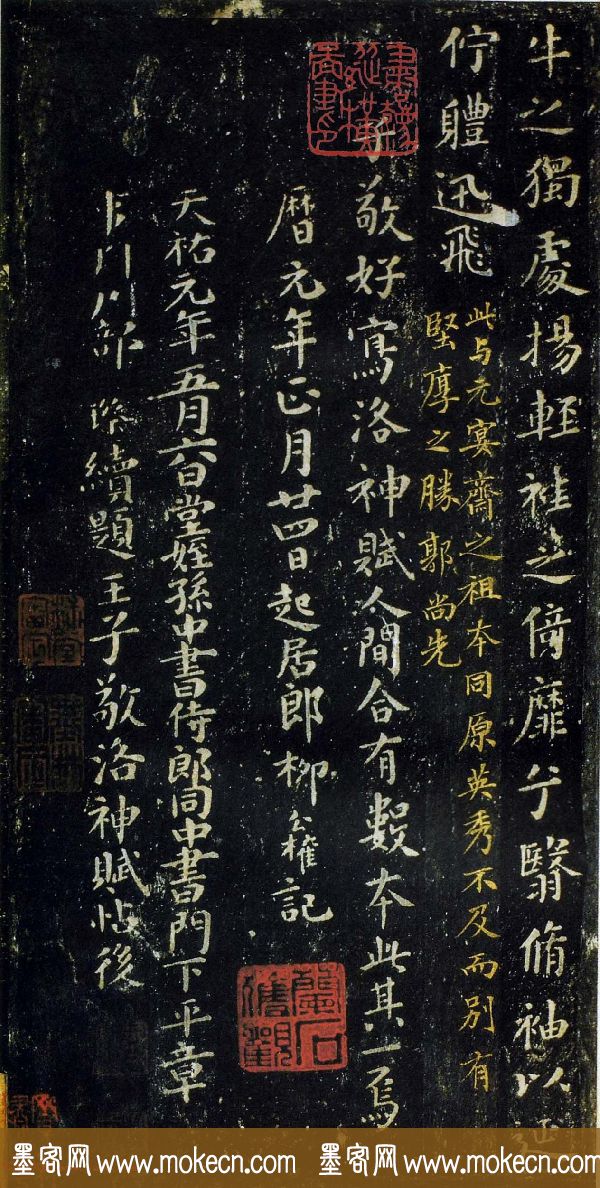 牛之獨處揚輕袿之倚靡兮翳脩袖以延
佇體迅飛
此与元宴齋之祖本同原英秀不及而別有
堅厚之勝郭尚先
子敬好寫洛神賦人間合有數本此其一焉寶
曆元年正月廿四日起居郎柳公權記
天祐元年五月六日堂姪孫中書侍郎同中書門下平章
事 川部 璨續題王子敬洛神賦帖後
墨客网 www.mokecn.com 墨客网 www.mokecn.com